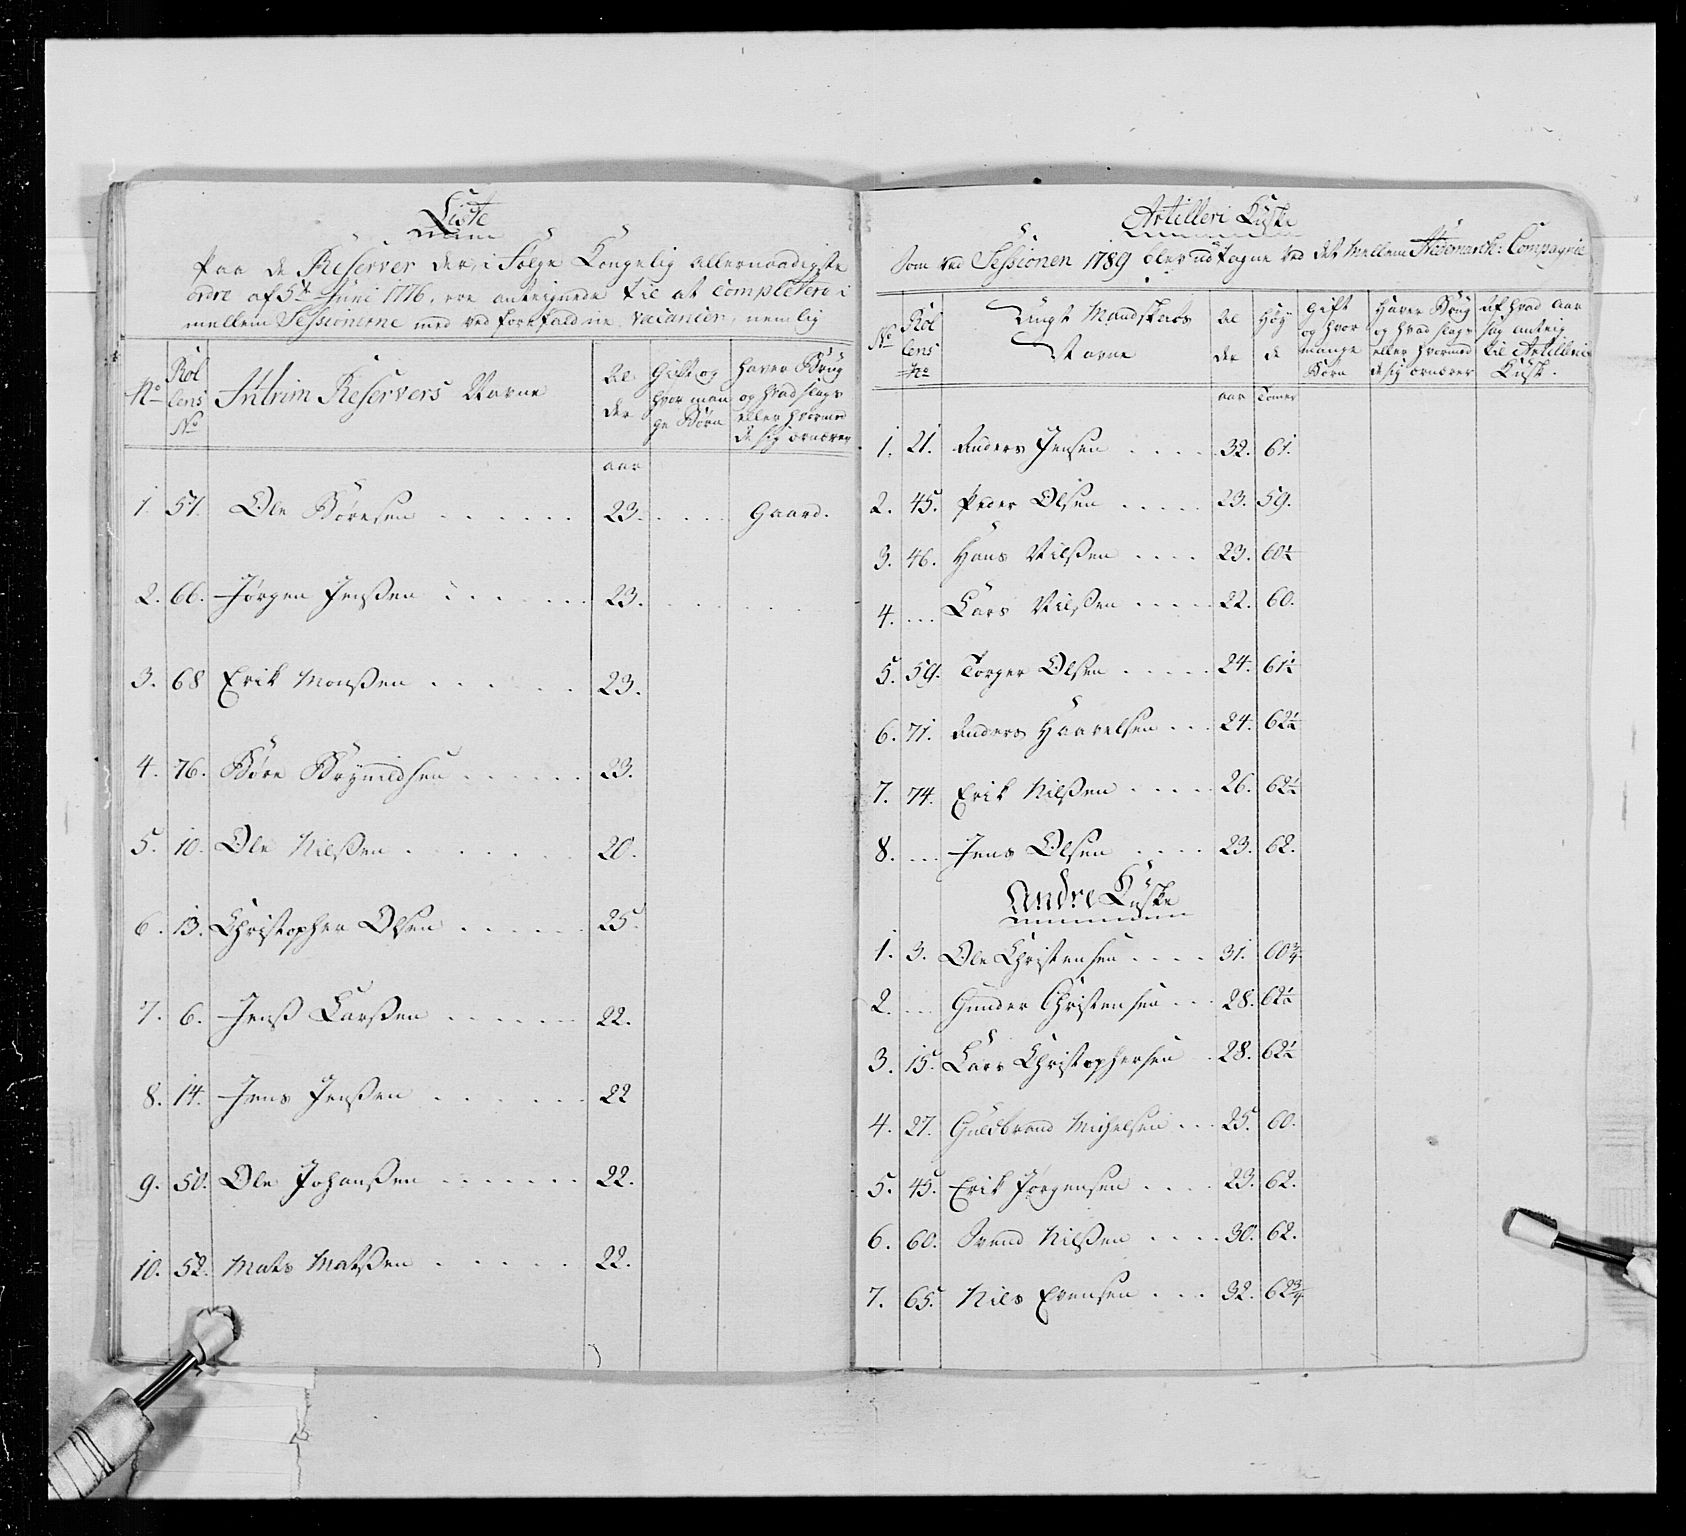 Liste
Paa de Reserver der, i Følge Kongelig allernaadigste
ordre af 5te Juni 1776, ere antegnede til at completere i
mellem Sessionerne med ved forefaldne vacancer, nemlig
No Rol lens No Intrim Reservers Navne Al der Gift og hvor man ge Børn haver Brug og hvad slags eller hvormed de sig ernærer
aar
1. 57. Ole Børesen . . . . . . 23. . . . . Gaard.
2. 66. Jørgen Jenßen . . . . . 23. . . . .
3. 68 Erik Monßen . . . . . 23.
4. 76. Børe Brynildsen . . . . . 23.
5. 10. Ole Nilßen . . . . . 20.
6. 13. Christopher Olsen . . . . . 25.
7. 6. Jenß Larßen . . . . . . 22.
8. 14. Jens Jenßen . . . . . 22
9. 50. Ole Johanßen . . . . . . . 22.
10. 52. Mats Matßen . . . . . 22.
Artilleri Kuske
Som ved Sessionen 1789 blev udtagne ved det Mellem Hedemarks: Compagnie
No Rol lens No Ungt Mandskabs Navne Al der Høy de Gift og hvor mange Børn Haver Brug og hvad slags eller hvormed de sig ernærer Af hvad Aar sag anteig til Artilleri Kusk.
aar Tomer
1. 21. Anders Jensen . . . . 32. 61.
2. 45. Peder Olsen . . . . . 23. 59.
3. 46. Hans Nilßen . . . . 23. 60½
4. ... Lars Nilßen . . . . . 22. 60.
5. 59. Torger Olsen . . . . . 24. 61½
6. 71. Anders Haavelsen . . . 24. 62½
7. 74. Erik Nilßen . . . . 26. 62½
8. ... Jens Olsen . . . . 23. 62.
Andre Kuske
1. 3. Ole Christensen . . . . 31. 60¾
2. ... Gunder Christensen . . . 28. 62½
3. 15. Lars Christophersen . 28. 62½
4. 27. Guldbrand Migelsen . . . 25. 60.
5. 45. Erik Jørgensen . . . . 23. 62.
6. 60. Svend Nilßen . . . . 30. 62.
7. 65. Nils Evensen . . . 32. 62¾